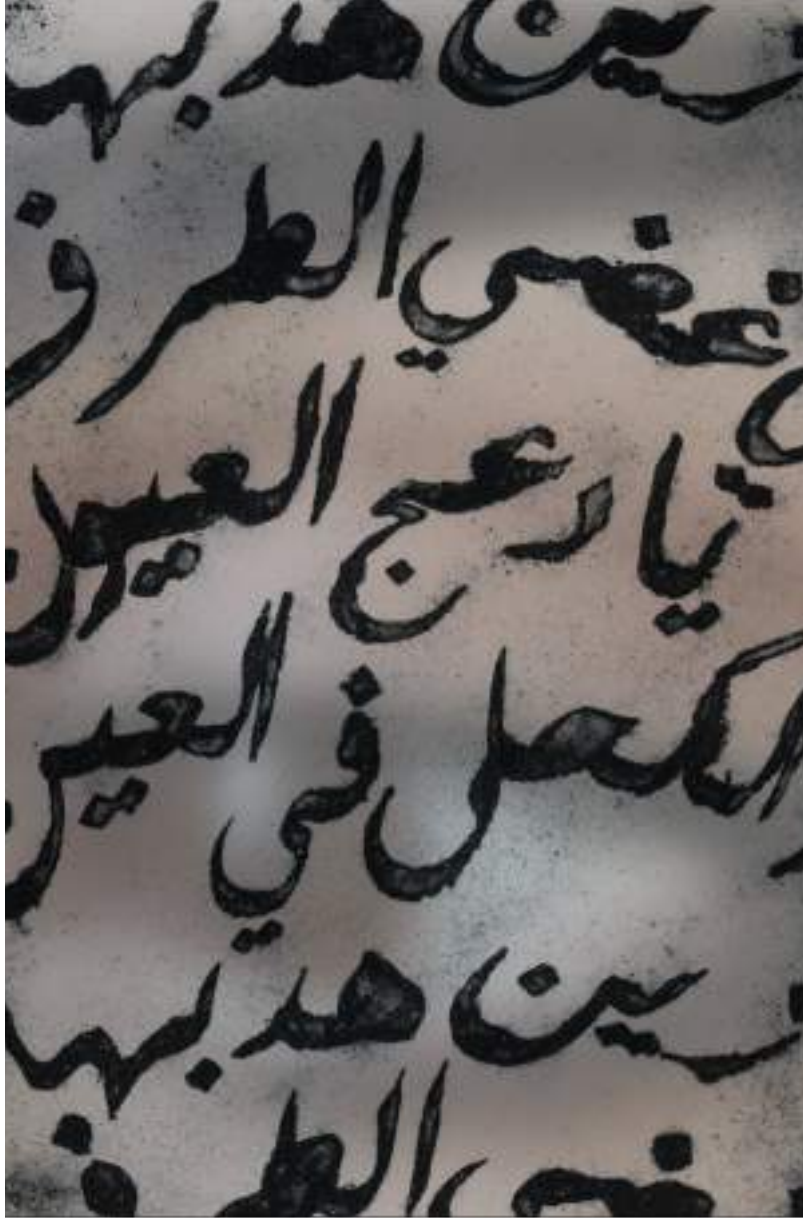 زين هدبها
غضي الطرف
يا دعج العيون
الكحل في العين
زين هدبها
غضي الطرف